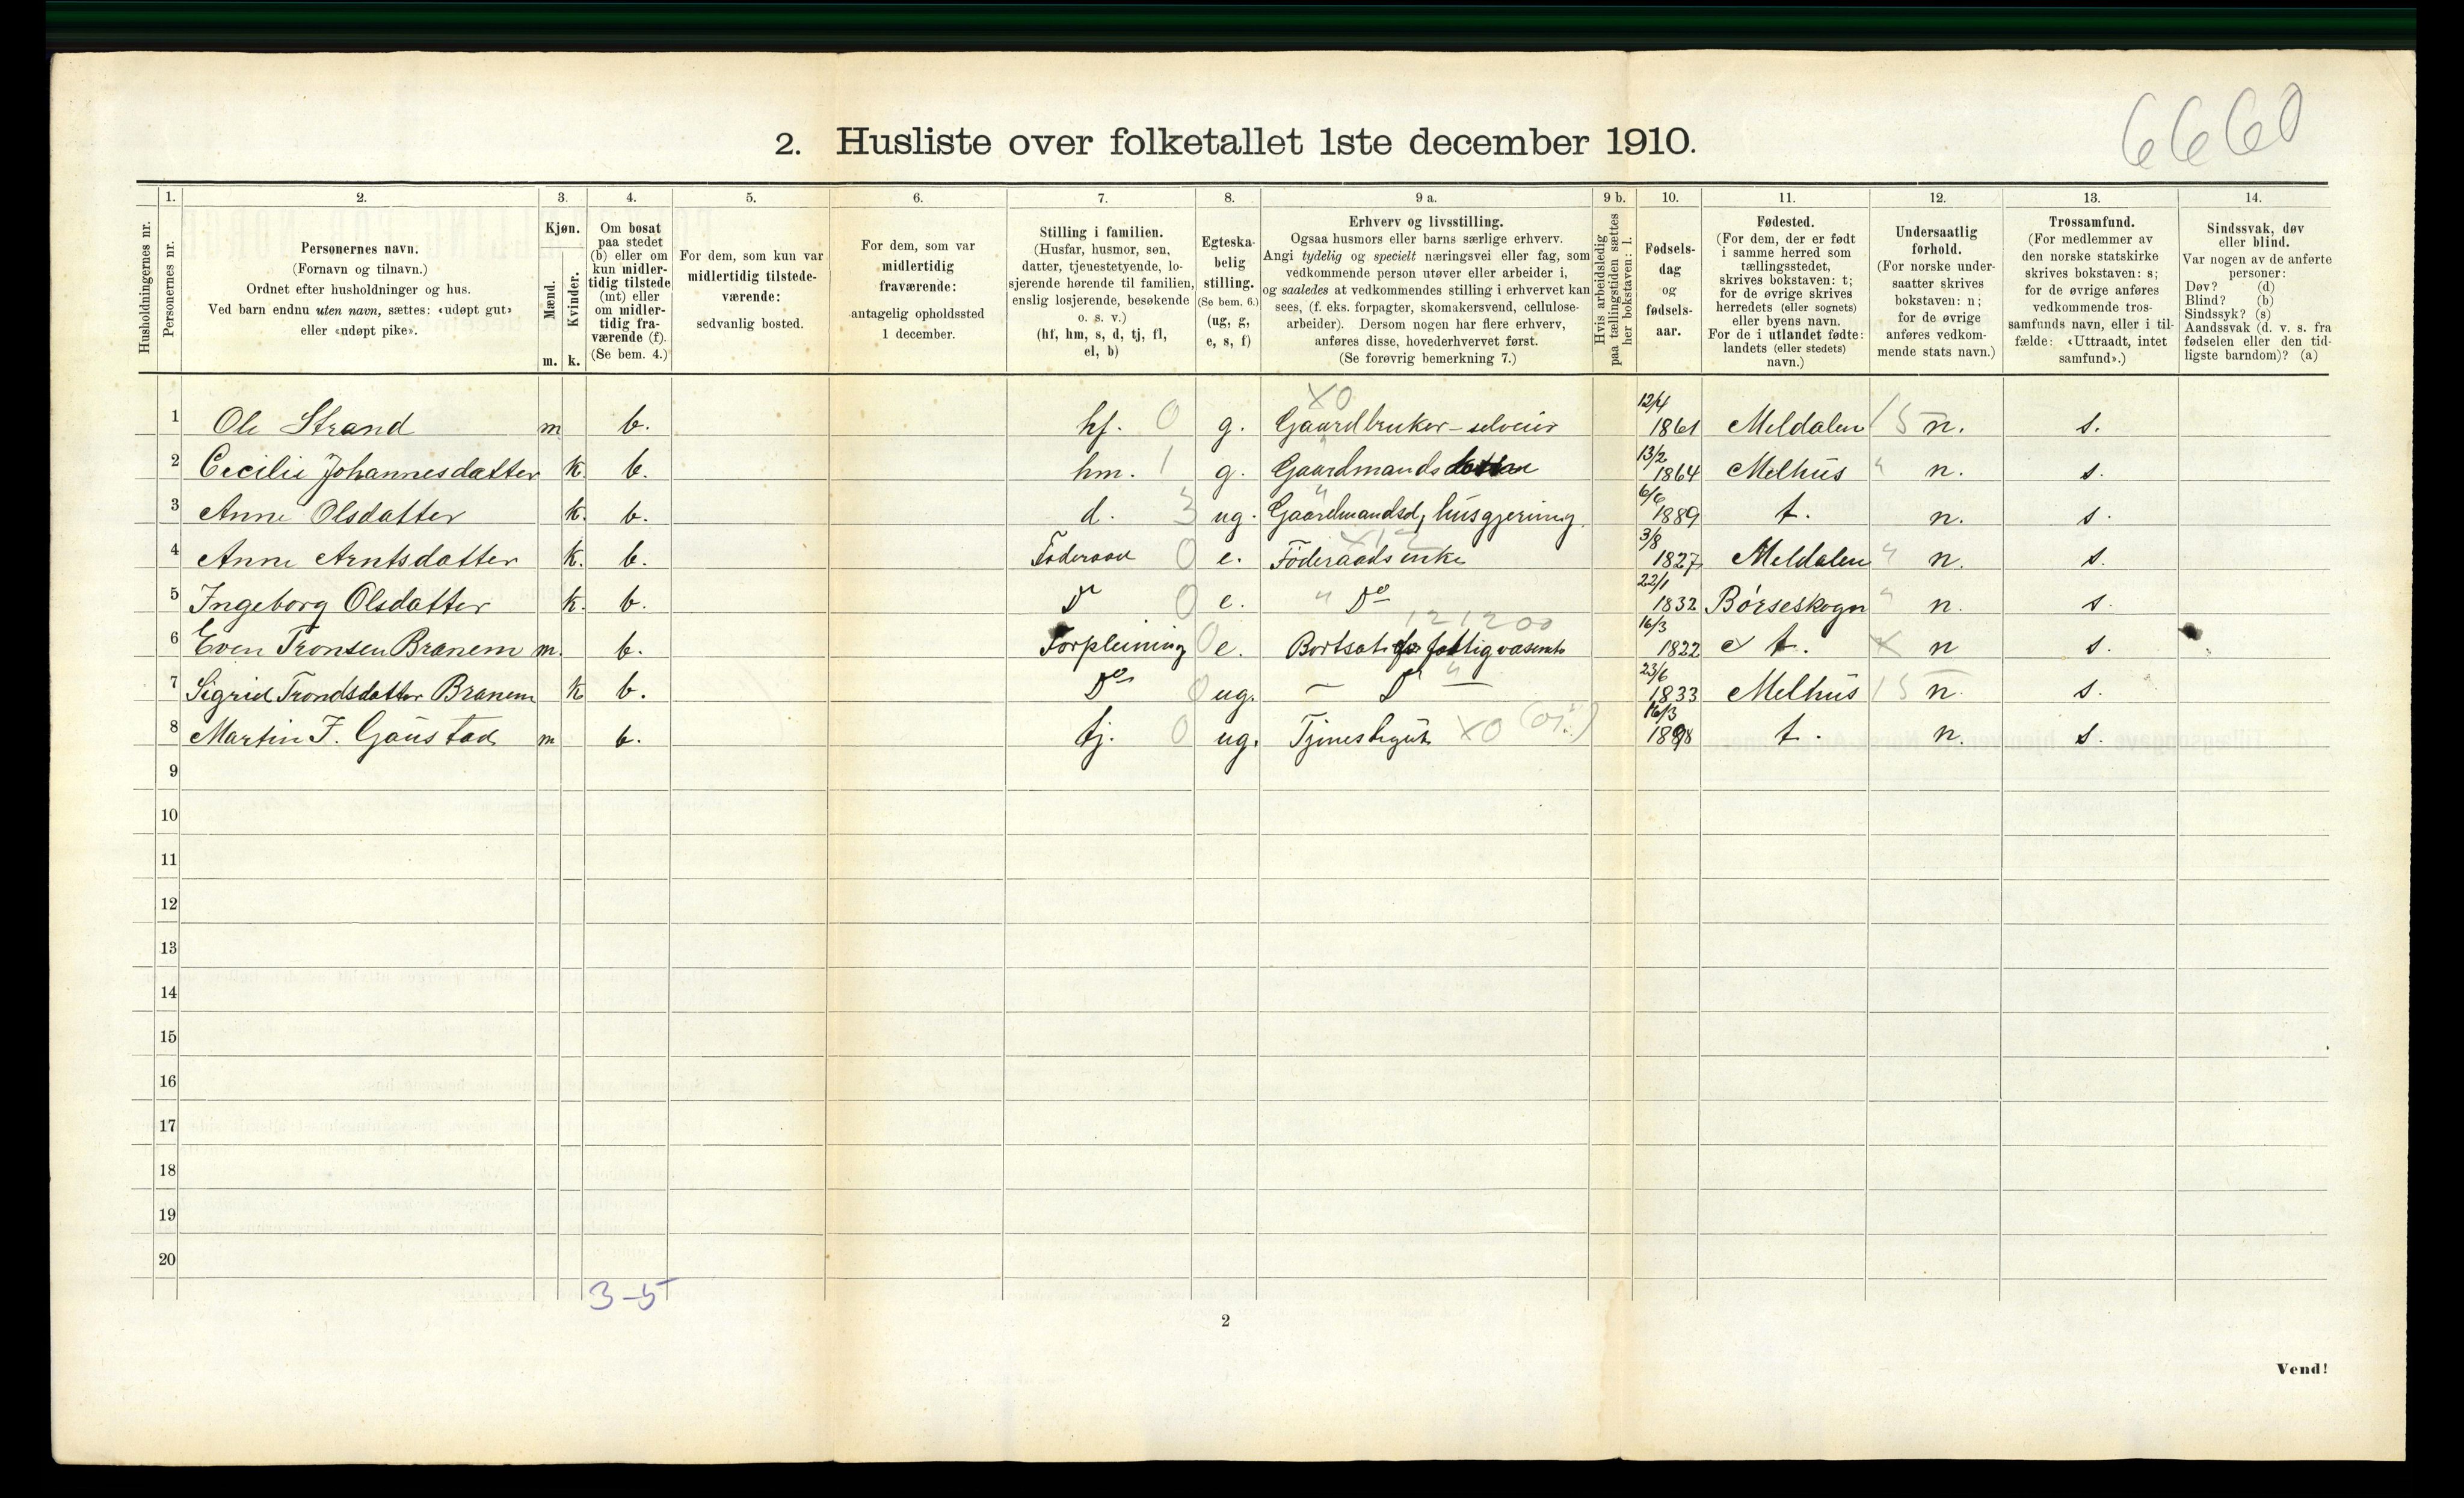 6660
2. Husliste over folketallet 1ste december 1910.
1. 2. 3. 4. 5. 6. 7. 8. 9 a. 9 b. 10. 11. 12. 13. 14.
Husholdningernes nr.
Personernes nr.
Personernes navn.
(Fornavn og tilnavn.)
Ordnet efter husholdninger og hus.
Ved barn endnu uten navn, sættes: «udøpt gut»
eller «udøpt pike».
Kjøn.
Mænd.
Kvinder.
m. k.
Om bosat
paa stedet
(b) eller om
kun midler-
tidig tilstede
(mt) eller
om midler-
tidig fra-
værende (f).
(Se bem. 4.)
For dem, som kun var
midlertidig tilstede-
værende:
sedvanlig bosted.
For dem, som var
midlertidig
fraværende:
antagelig opholdssted
1 december.
Stilling i familien.
(Husfar, husmor, søn,
datter, tjenestetyende, lo-
sjerende hørende til familien,
enslig losjerende, besøkende
o. s. v.)
(hf, hm, s, d, tj, fl,
el, b)
Egteska-
belig
stilling.
(Se bem. 6.)
(ug, g,
e, s, f)
Erhverv og livsstilling.
Ogsaa husmors eller barns særlige erhverv.
Angi tydelig og specielt næringsvei eller fag, som
vedkommende person utøver eller arbeider i,
og saaledes at vedkommendes stilling i erhvervet kan
sees, (f. eks. forpagter, skomakersvend, cellulose-
arbeider). Dersom nogen har flere erhverv,
anføres disse, hovederhvervet først.
(Se forøvrig bemerkning 7.)
Hvis arbeidsledig
paa tællingstiden sættes
her bokstaven: l.
Fødsels-
dag
og
fødsels-
aar.
Fødested.
(For dem, der er født
i samme herred som
tællingsstedet,
skrives bokstaven: t;
for de øvrige skrives
herredets (eller sognets)
eller byens navn.
For de i utlandet fødte:
landets (eller stedets)
navn.)
Undersaatlig
forhold.
(For norske under-
saatter skrives
bokstaven: n;
for de øvrige
anføres vedkom-
mende stats navn.)
Trossamfund.
(For medlemmer av
den norske statskirke
skrives bokstaven: s;
for de øvrige anføres
vedkommende tros-
samfunds navn, eller i til-
fælde: «Uttraadt, intet
samfund».)
Sindssvak, døv
eller blind.
Var nogen av de anførte
personer:
Døv? (d)
Blind? (b)
Sindssyk? (s)
Aandssvak (d. v. s. fra
fødselen eller den tid-
ligste barndom)? (a)
1 Ole Strand m b. hf. 0 g. X0 Gaardbruker - selveier 12/4 1861 Meldalen 15 n. s.
2 Cecilie Johannesdatter k. b. hm. 1 g. Gaardmands 13/2 1864 Melhus " n. s.
3 Anne Olsdatter k. b. d. 3 ug. " Gaardmandsd, husgjerning 6/6 1889 t. n. s.
4 Anne Arntsdatter k. b. Føderaad 0 e. Føderaadsenke 3/8 1827 Meldalen " n. s.
5 Ingeborg Olsdatter k. b. Do 0 e. " Do 22/1 1832 Børseskogn " n. s.
6 Even Tronsen Branem m. b. Forpleining 0 e. 121200 Bortsat fattigvæsenet 16/3 1822 t. n s.
7 Sigrid Trondsdatter Branem k b. Do 0 ug. — Do " 23/6 1833 Melhus 15 n. s.
8 Martin J. Gaustad m b. tj. 0 ug. Tjenestegut X0 16/3 1898 t. n. s.
9
10
11
12
13
14
15
16
17
18
19
20
3-5
2
Vend!